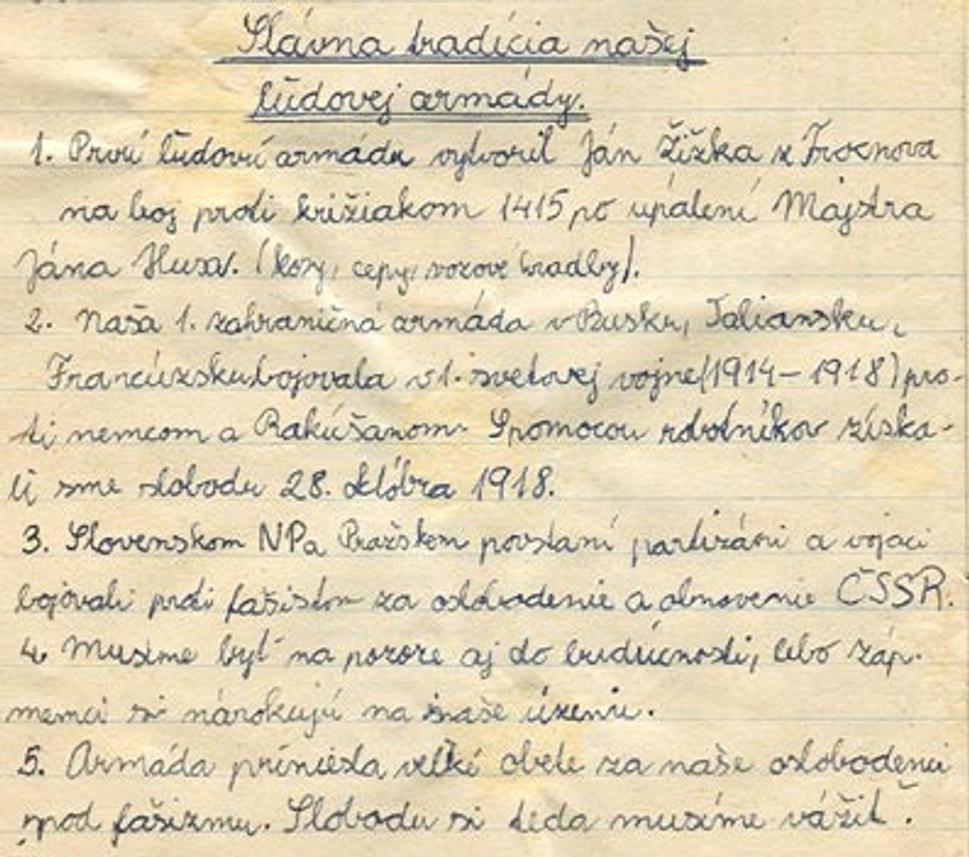 Slávna tradícia našej
ľudovej armády.
1. Prvú ľudovú armádu vytvoril Ján Žižka z Trocnova
na boj proti križiakom 1415 po upálení Majstra
Jána Husa. (kosy, cepy, vozové hradby).
2. Naša 1. zahraničná armáda v Rusku, Taliansku,
Francúzsku bojovala v 1. svetovej vojne (1914-1918) pro-
ti nemcom a Rakúšanom. S pomocou robotníkov získa-
li sme slobodu 28. Október 1918.
3. Slovenskom NP a Pražskom povstaní partizáni a vojaci
bojovali proti fašistom za oslobodenie a obnovenie ČSSR.
4. Musíme byť na pozore aj do budúcnosti, lebo záp.
nemci si nárokujú na naše územie.
5. Armáda priniesla veľké obete za naše oslobodenie
spod fašizmu. Slobodu si teda musíme vážiť.